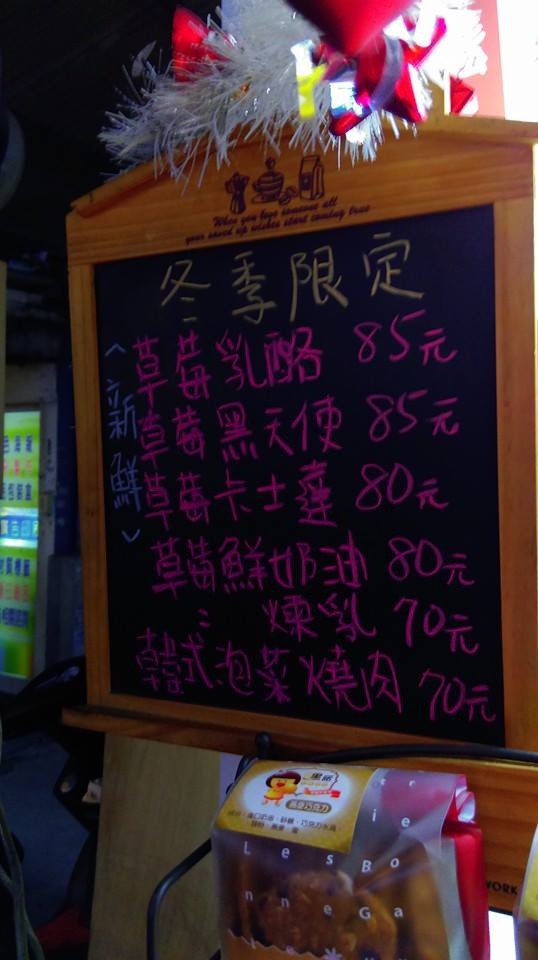 When you love someone all
your saved up wishes start coming true
冬季限定
<新鮮>
草莓乳酪 85元
草莓黑天使 85元
草莓卡士達 80元
草莓鮮奶油 80元
〃 煉乳 70元
韓式泡菜燒肉 70元
燕麥巧克力
LesBo
nneGa
WORK